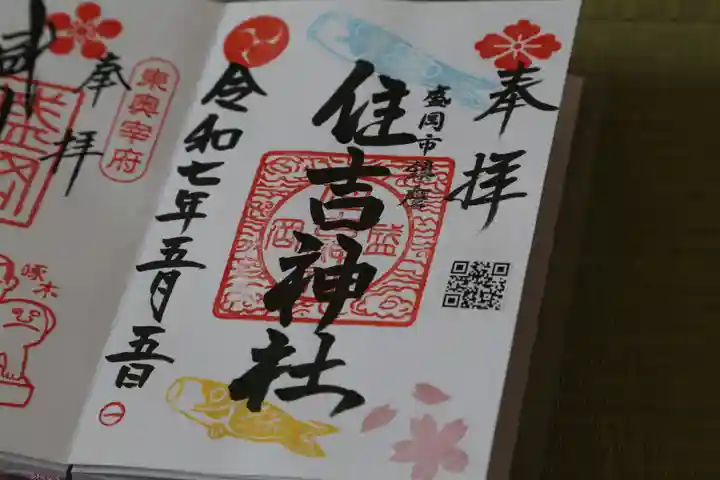 奉拝
盛岡市鎮座
住吉神社
盛岡
令和七年五月五日
一
奉拝
東奥宰府
啄木